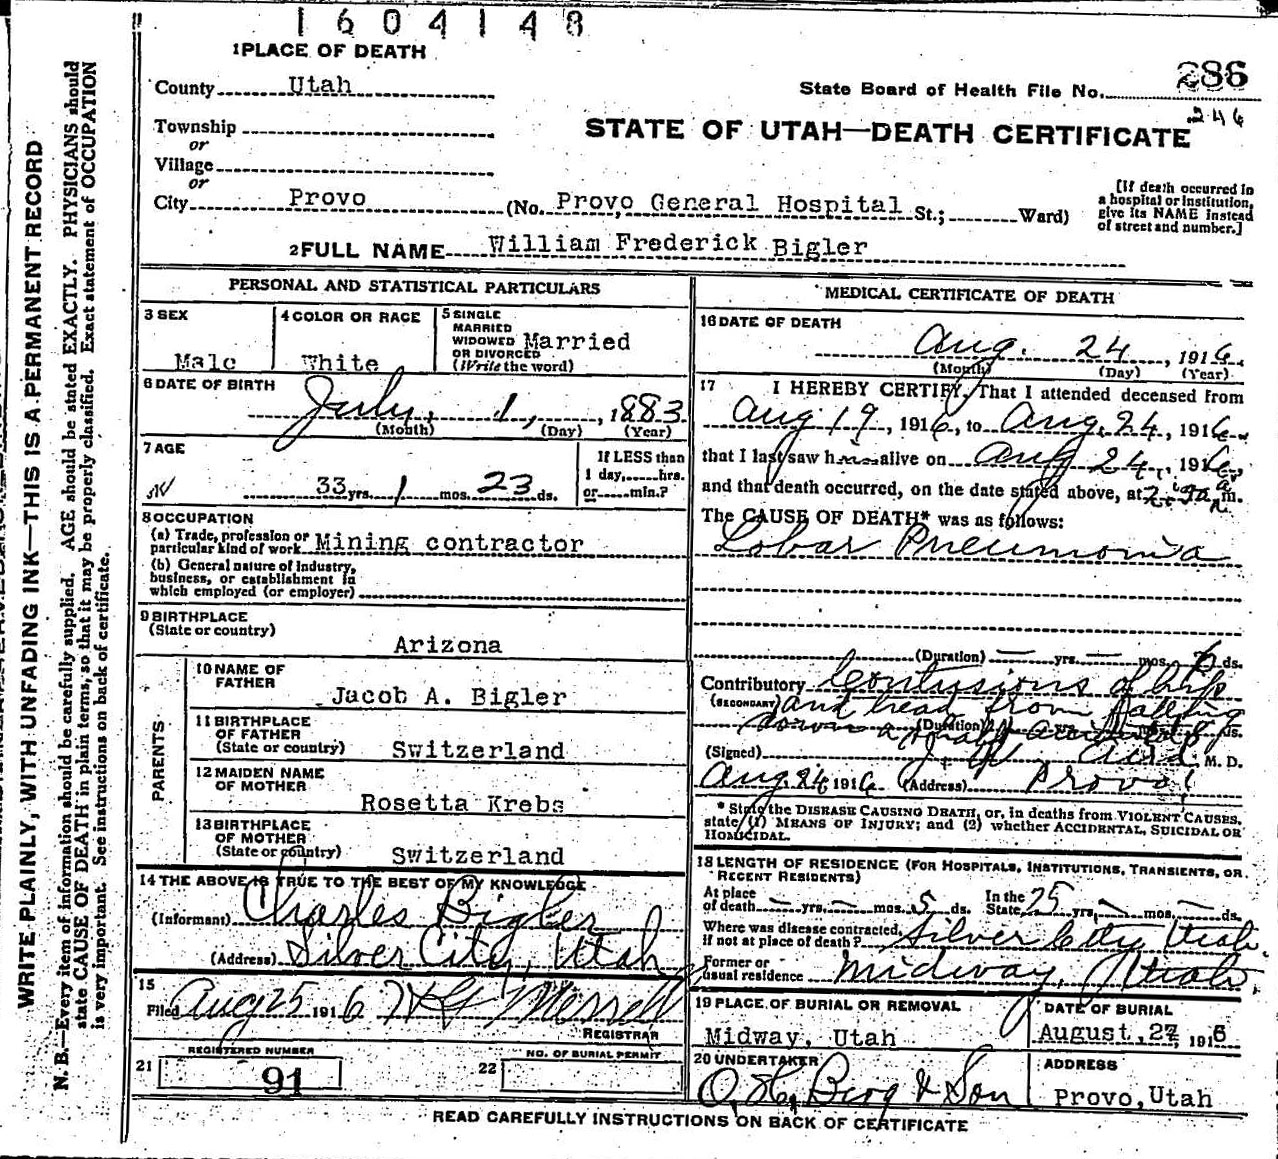 1604148
1 PLACE OF DEATH
County Utah
State Board of Health File No. 286
246
Township
or
STATE OF UTAH—DEATH CERTIFICATE
Village
or
City Provo (No. Provo General Hospital St.; Ward)
[If death occurred in
a hospital or institution,
give its NAME instead
of street and number.]
2 FULL NAME William Frederick Bigler
PERSONAL AND STATISTICAL PARTICULARS
3 SEX
Male
4 COLOR OR RACE
White
5 SINGLE
MARRIED
WIDOWED
OR DIVORCED
(Write the word)
Married
6 DATE OF BIRTH
July, 1, 1883
(Month) (Day) (Year)
7 AGE
33 yrs. 1 mos. 23 ds.
If LESS than
1 day, hrs.
or min.?
8 OCCUPATION
(a) Trade, profession or
particular kind of work Mining contractor
(b) General nature of industry,
business, or establishment in
which employed (or employer)
9 BIRTHPLACE
(State or country)
Arizona
PARENTS
10 NAME OF
FATHER
Jacob A. Bigler
11 BIRTHPLACE
OF FATHER
(State or country) Switzerland
12 MAIDEN NAME
OF MOTHER
Rosetta Krebs
13 BIRTHPLACE
OF MOTHER
(State or country) Switzerland
14 THE ABOVE IS TRUE TO THE BEST OF MY KNOWLEDGE
(Informant) Charles Bigler
(Address) Silver City, Utah
15
Filed Aug 25 1916 Merrell
REGISTRAR
21 REGISTERED NUMBER
91
22 NO. OF BURIAL PERMIT
MEDICAL CERTIFICATE OF DEATH
16 DATE OF DEATH
Aug. 24, 1916.
(Month) (Day) (Year)
17 I HEREBY CERTIFY, That I attended deceased from
Aug 19, 1916, to Aug. 24, 1916.
that I last saw him alive on Aug 24, 1916,
and that death occurred, on the date stated above, at m.
The CAUSE OF DEATH* was as follows:
Lobar Pneumonia
(Duration) — yrs. — mos. 6 ds.
Contributory Contusions of hip
(SECONDARY) and head from falling
down a shaft
(Duration) yrs. ds.
(Signed) J. W. Aird. M. D.
Aug 24 1916 (Address) Provo
* State the DISEASE CAUSING DEATH, or, in deaths from VIOLENT CAUSES,
state (1) MEANS OF INJURY; and (2) whether ACCIDENTAL, SUICIDAL OR
HOMICIDAL.
18 LENGTH OF RESIDENCE (FOR HOSPITALS, INSTITUTIONS, TRANSIENTS, OR
RECENT RESIDENTS)
At place
of death — yrs. — mos. 5 ds. In the
State 25 yrs. — mos. — ds.
Where was disease contracted,
if not at place of death? Silver City, Utah.
Former or
usual residence Midway, Utah.
19 PLACE OF BURIAL OR REMOVAL
Midway, Utah
DATE OF BURIAL
August, 27 1916
20 UNDERTAKER
O. H. Berg & Son
ADDRESS
Provo, Utah
READ CAREFULLY INSTRUCTIONS ON BACK OF CERTIFICATE
WRITE PLAINLY, WITH UNFADING INK—THIS IS A PERMANENT RECORD
N. B.—Every item of information should be carefully supplied. AGE should be stated EXACTLY. PHYSICIANS should
state CAUSE OF DEATH in plain terms, so that it may be properly classified. Exact statement of OCCUPATION
is very important. See instructions on back of certificate.